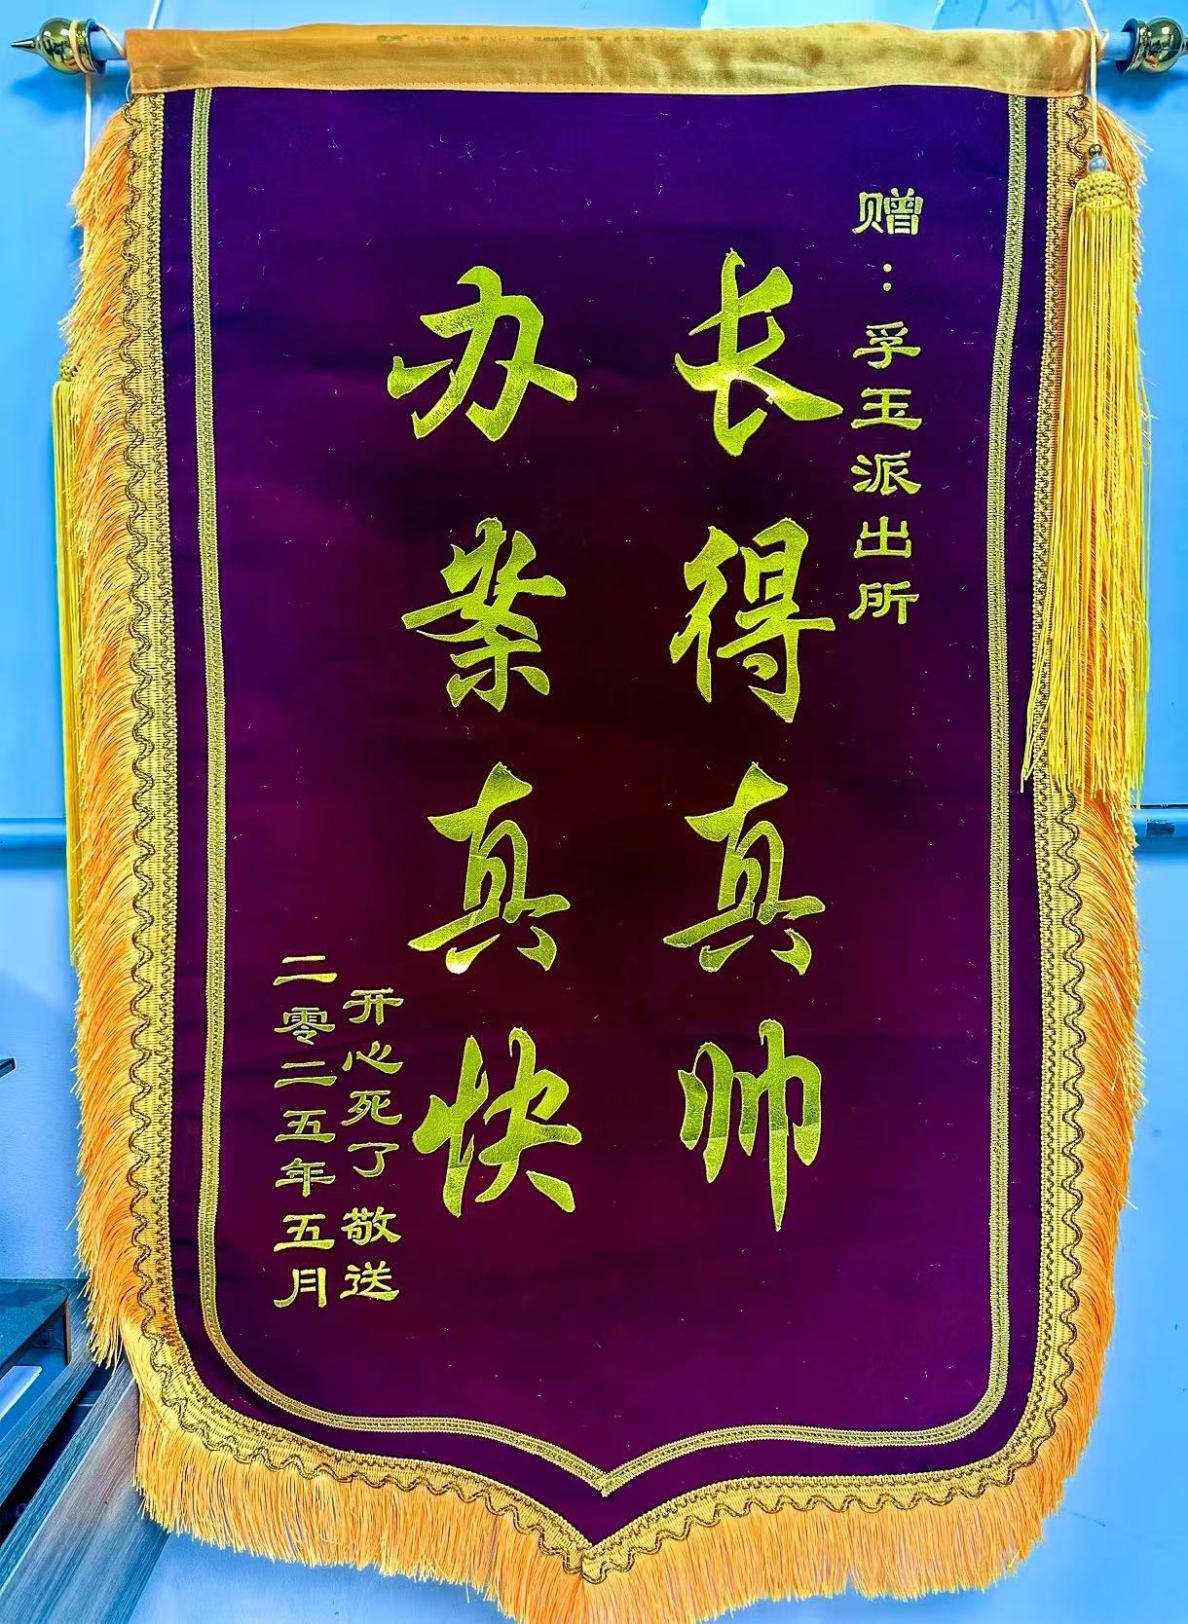 赠：孚玉派出所
长得真帅
办案真快
开心死了 敬送
二零二五年五月